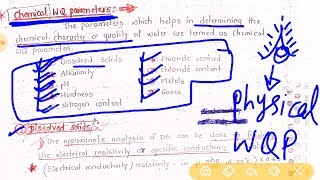 Chemical WQ parameters:-
The parameters which helps in determining the
chemical character or quality of water are termed as chemical
WQ parameters.
Dissolved solids
Alkalinity
pH
Hardness
Nitrogen content
Fluoride content
Chloride content
Metals
Gases
physical
WQP
Dissolved solids:
The approximate analysis of DS can be done
the electrical resistivity or specific conductivity
(Electrical conductivity/resistivity